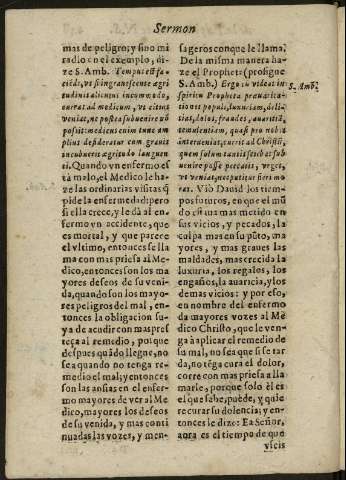 Sermon
mas de peligro; y sino mi
radlo en el exemplo, di-
ze S. Amb. Tempus est fa-
ciẽdi, vt si ingrauescente ægri
tudinis alicuius incommodo,
currat ad medicum, vt citius
veniat, ne postea subuenire nõ
possit: medicus enim tunc am
plius desideratur cum grauis
incubuerit ægritudo languen
ti. Quando vn enfermo es
tà malo, el Medico le ha-
ze las ordinarias visitas q̃
pide la enfermedad: pero
si ella crece, y le dà al enfer-
fermo vn accidente, que
es mortal, y que parece
el vltimo, entonces se lla
ma con mas priesa al Me-
dico, entonces son los ma
yores deseos de su veni-
da, quando son los mayo-
res peligros del mal, en-
tonces la obligacion su-
ya de acudir con mas pres
teça al remedio, porque
despues quãdo llegue, no
sea quando no tenga re-
medio el mal; y entonces
son las ansias en el enfer-
mo mayores de ver al Me
dico, mayores los deseos
de su venida, y mas conti
nuadas las vozes, y men-
sageros con que le llama?
De la misma manera ha-
ze el Propheta (prosigue
S. Amb.) Ergo vt videat in
S. Amb.
spiritu Propheta præuarica-
tionis populi, luxuriam, deli-
tias, dolos, fraudes, auaritiã,
temulentiam, quasi pro nobis
interueniens, currit ad Christũ,
quem solum tantis scit ab sub-
uenire posse peccatis, vrget,
vt veniat, nec patitur fieri mo-
ras. Viò Dauid los tiem-
pos futuros, en que el mũ
do estaua mas metido en
sus vicios, y pecados, la
culpa mas en su pũto, ma
yores, y mas graues las
maldades, mas crecida la
luxuria, los regalos, los
engaños, la auaricia, y los
demas vicios: y por eso,
en nombre del enfermo
da mayores vozes al Mẽ
dico Christo, que le ven-
ga à aplicar el remedio de
su mal, no sea que si se tar
da, no tẽga cura el dolor,
corre con mas priesa a lla
marle, porque solo èl es
el que sabe, puede, y quie
re curar su dolencia; y en-
tonces le dize: Ea Señor,
aora es el tiempo de que
yseis